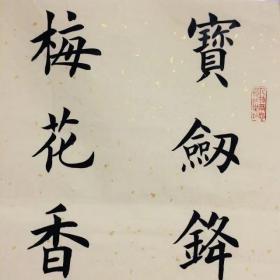 寶劒鋒
梅花香